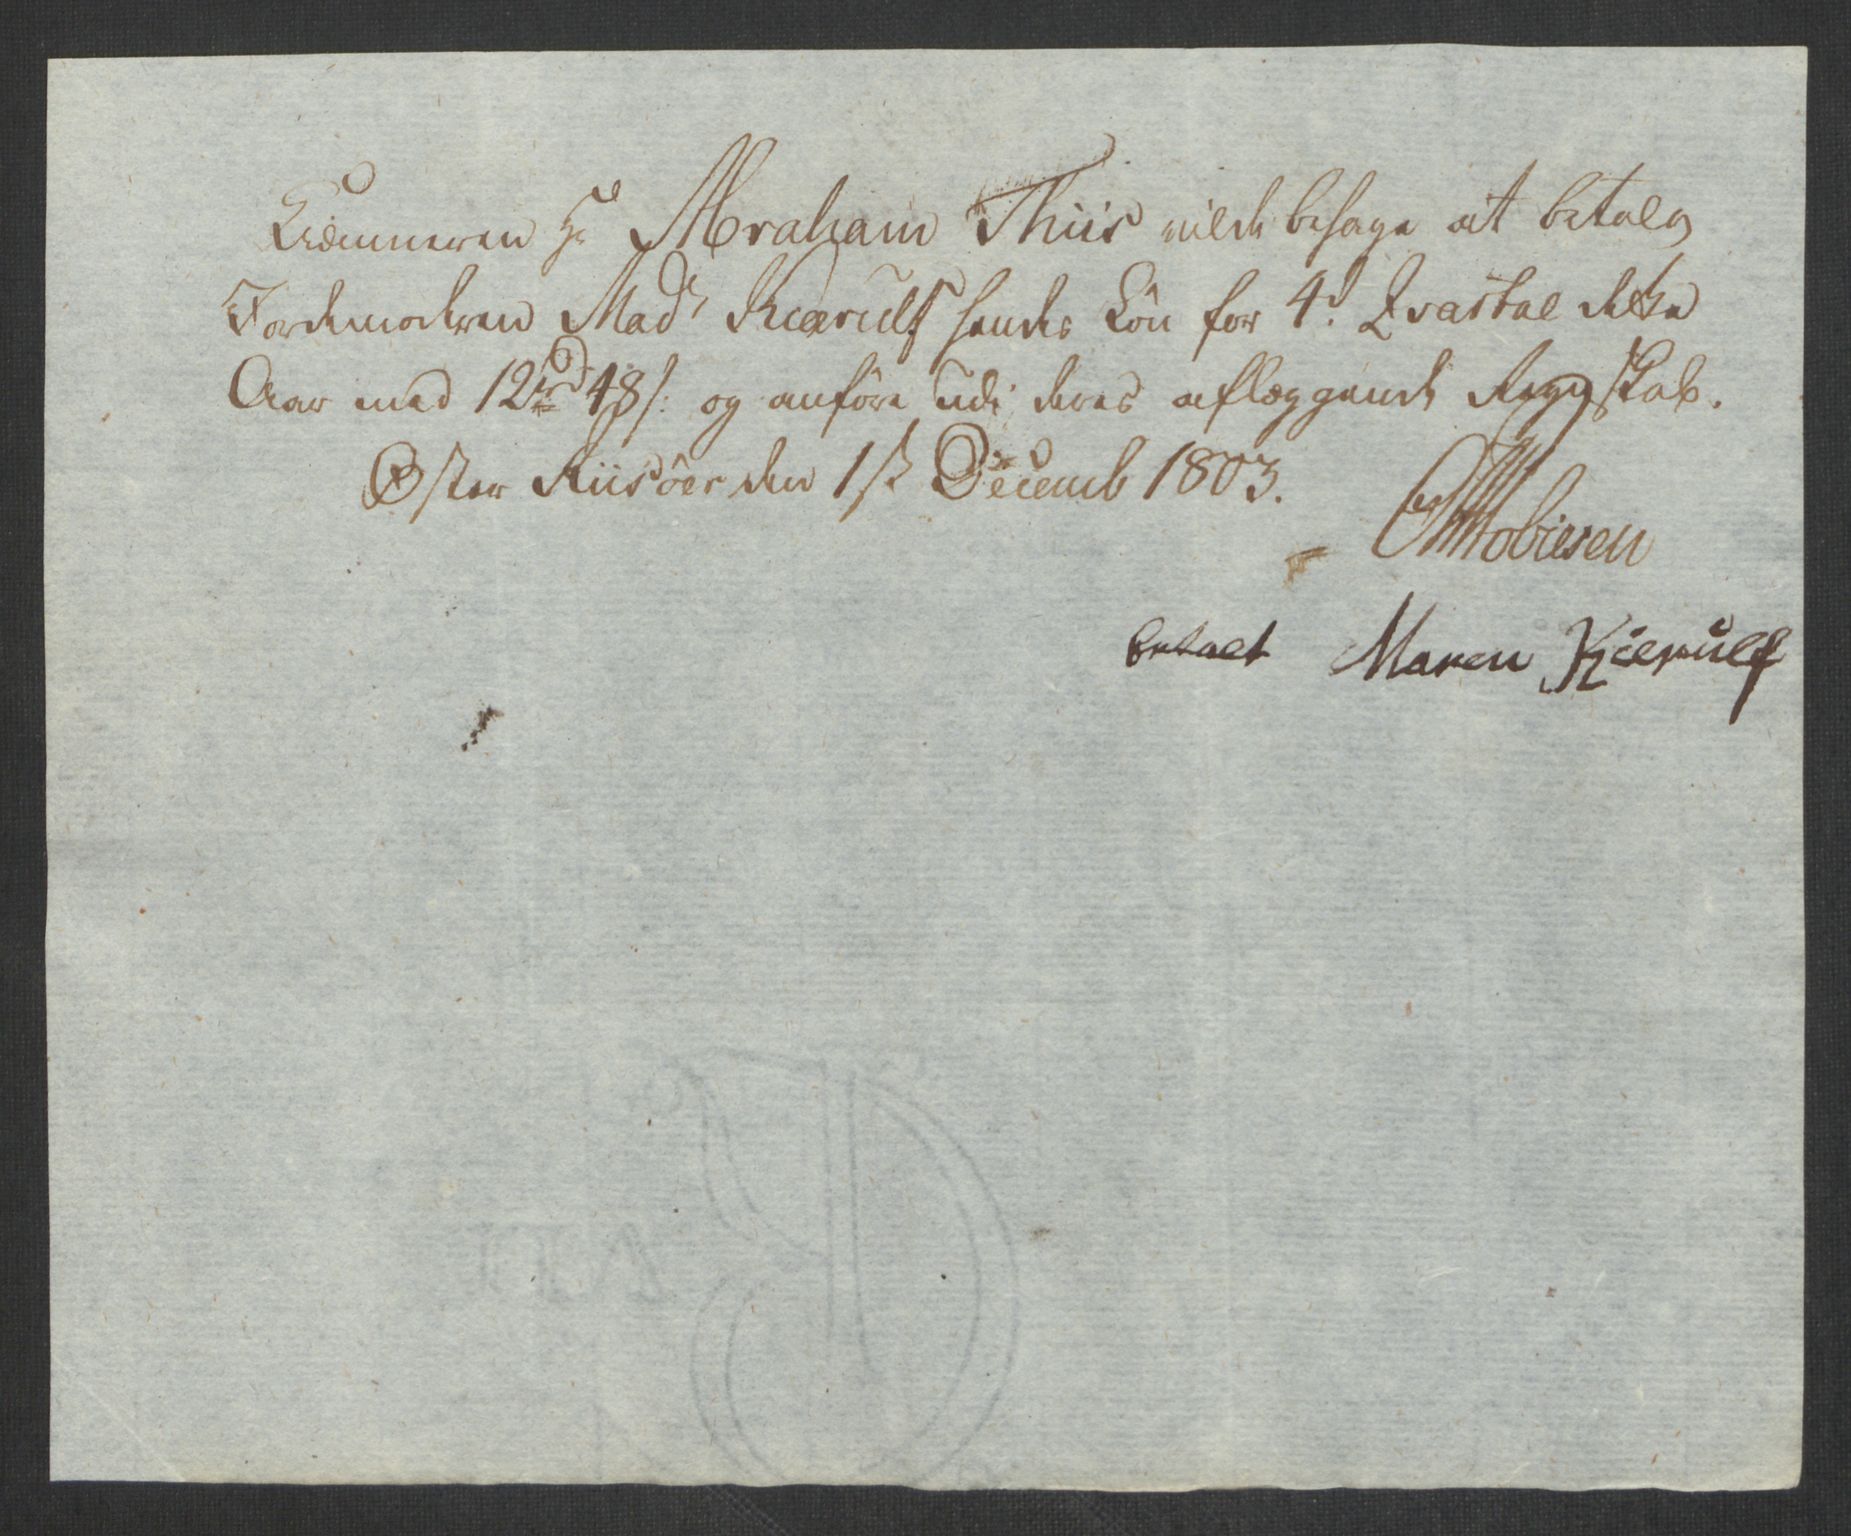 Kiæmneren Hr Abraham Thiis vilde behage at betale
Jordemoderen Madme Kiærulf hendes Lön for 4d Qvartal dette
Aar med 12 rd 48 s: og anföre udi deres aflæggende Regnskab.
Øster Riisöer den 1st Decemb 1803.
Tobiesen
betalt Maren Kierulf